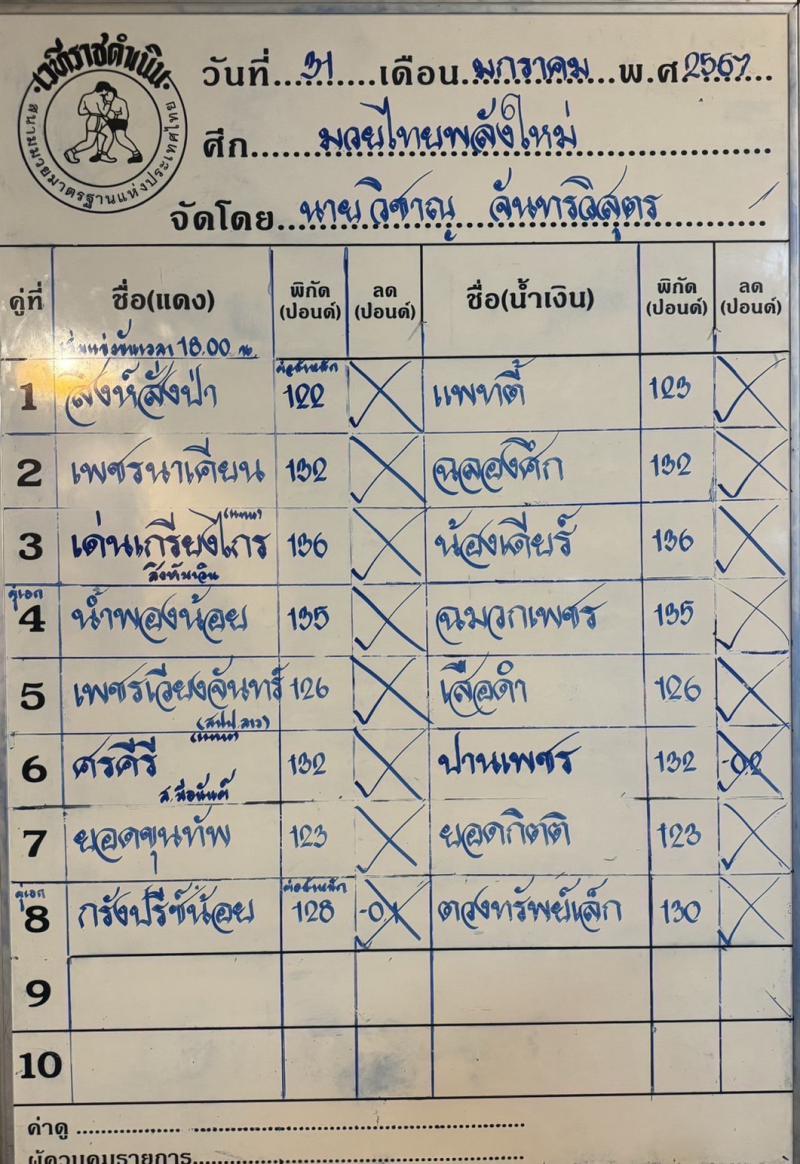 เวทีราชดำเนิน
สนามมวยมาตรฐานแห่งประเทศไทย
วันที่...31....เดือน..มกราคม...พ.ศ 2567
ศึก....มวยไทยพลังใหม่
จัดโดย...นายวิชาญ จันทรวิสุตร
คู่ที่ ชื่อ(แดง) พิกัด (ปอนด์) ลด (ปอนด์) ชื่อ(น้ำเงิน) พิกัด (ปอนด์) ลด (ปอนด์)
เริ่มแข่งขันเวลา 18.00 น.
ต่อน้ำหนัก
1 สิงห์สั่งป่า 122 แพทตี้ 123
2 เพชรนาเคียน 132 ฉลองศึก 132
(แทน)
3 เด่นเกรียงไกร 136 น้องเดียร์ 136
คู่เอก
4 น้ำพองน้อย 135 ฉมวกเพชร 135
5 เพชรเวียงจันทร์ 126 เสือดำ 126
(สปป.ลาว)
(แทน)
6 ศรคีรี 132 ปานเพชร 132 -0.2
7 ยอดขุนทัพ 123 ยอดกิตติ 123
คู่เอก ต่อน้ำหนัก
8 กรังปรีซ์น้อย 128 -0.1 ตวงทรัพย์เล็ก 130
9
10
ค่าดู
ผู้ควบคุมรายการ